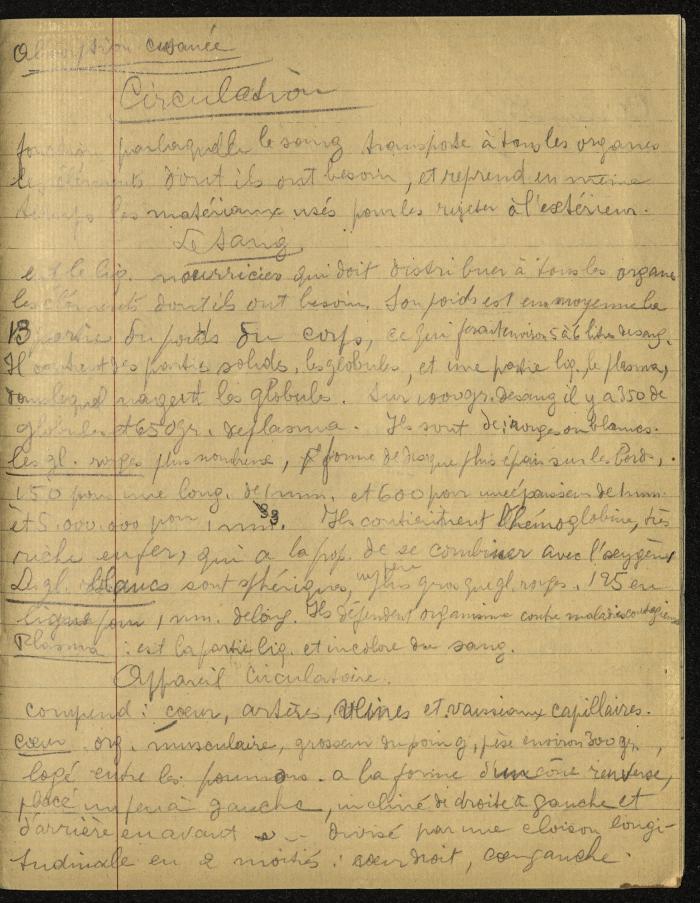 Absorption cutanée
Circulation
fonction par laquelle le sang transporte à tous les organes
les éléments dont ils ont besoin, et reprend en même
temps les matériaux usés pour les rejeter à l'extérieur.
Le sang
est le liq. nourricier qui doit distribuer à tous les organes
les éléments dont ils ont besoin. Son poids est en moyenne la
13 partie du poids du corps, ce qui fait environ 5 à 6 litres de sang.
Il contient des parties solides, les globules, et une partie liq. le plasma,
dans lequel nagent les globules. Sur 1000 gr. de sang il y a 350 de
globules et 650 gr. de plasma. Ils sont de rouges ou blancs.
Les gl. rouges plus nombreux, forme de disque plus épais sur les bords,
150 pour une long. de 1 mm. et 600 pour une épaisseur de 1 mm.
et 5.000.000 pour 1 mm3. Ils contiennent l'hémoglobine, très
riche en fer, qui a la prop. de se combiner avec l'oxygène
D. gl. blancs sont sphériques, plus gros que gl. rouges. 125 en
ligne pour 1 mm. de long. Ils défendent organisme contre maladies contagieuses
Plasma : est la partie liq. et incolore du sang.
Appareil Circulatoire.
comprend : cœur, artères, veines et vaisseaux capillaires.
cœur org. musculaire, grosseur du poing, pèse environ 300 gr,
logé entre les poumons. a la forme d'un cône renversé,
placé un peu à gauche, incliné de droite à gauche et
d'arrière en avant divisé par une cloison longi-
tudinale en 2 moitiés : cœur droit, cœur gauche.